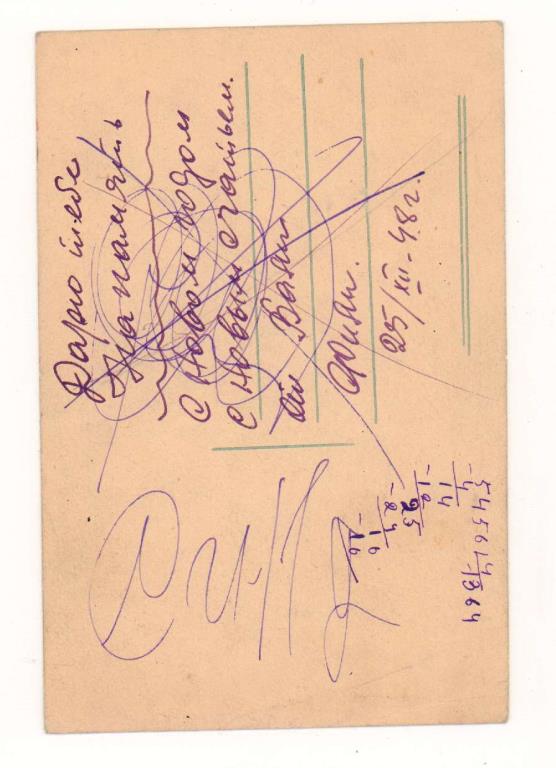 Дарю тебе
на память
С новым годом
С новым счастьем.
Вали
25/XII-48г.
5456 4
-4 1364
14
-12
25
-24
16
-16